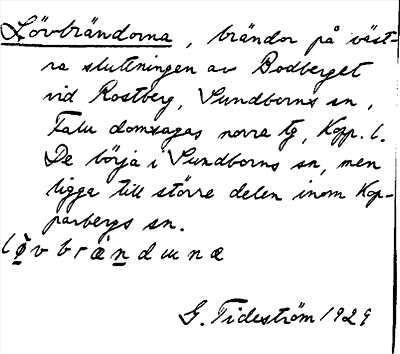 Lövbrändorna, brändor på väst-
ra sluttningen av Bodberget
vid Rostberg, Sundborns sn,
Falu domsagas norra tg, Kopp. l.
De börja i Sundborns sn, men
ligga till större delen inom Kop-
parbergs sn.
G. Tideström 1929